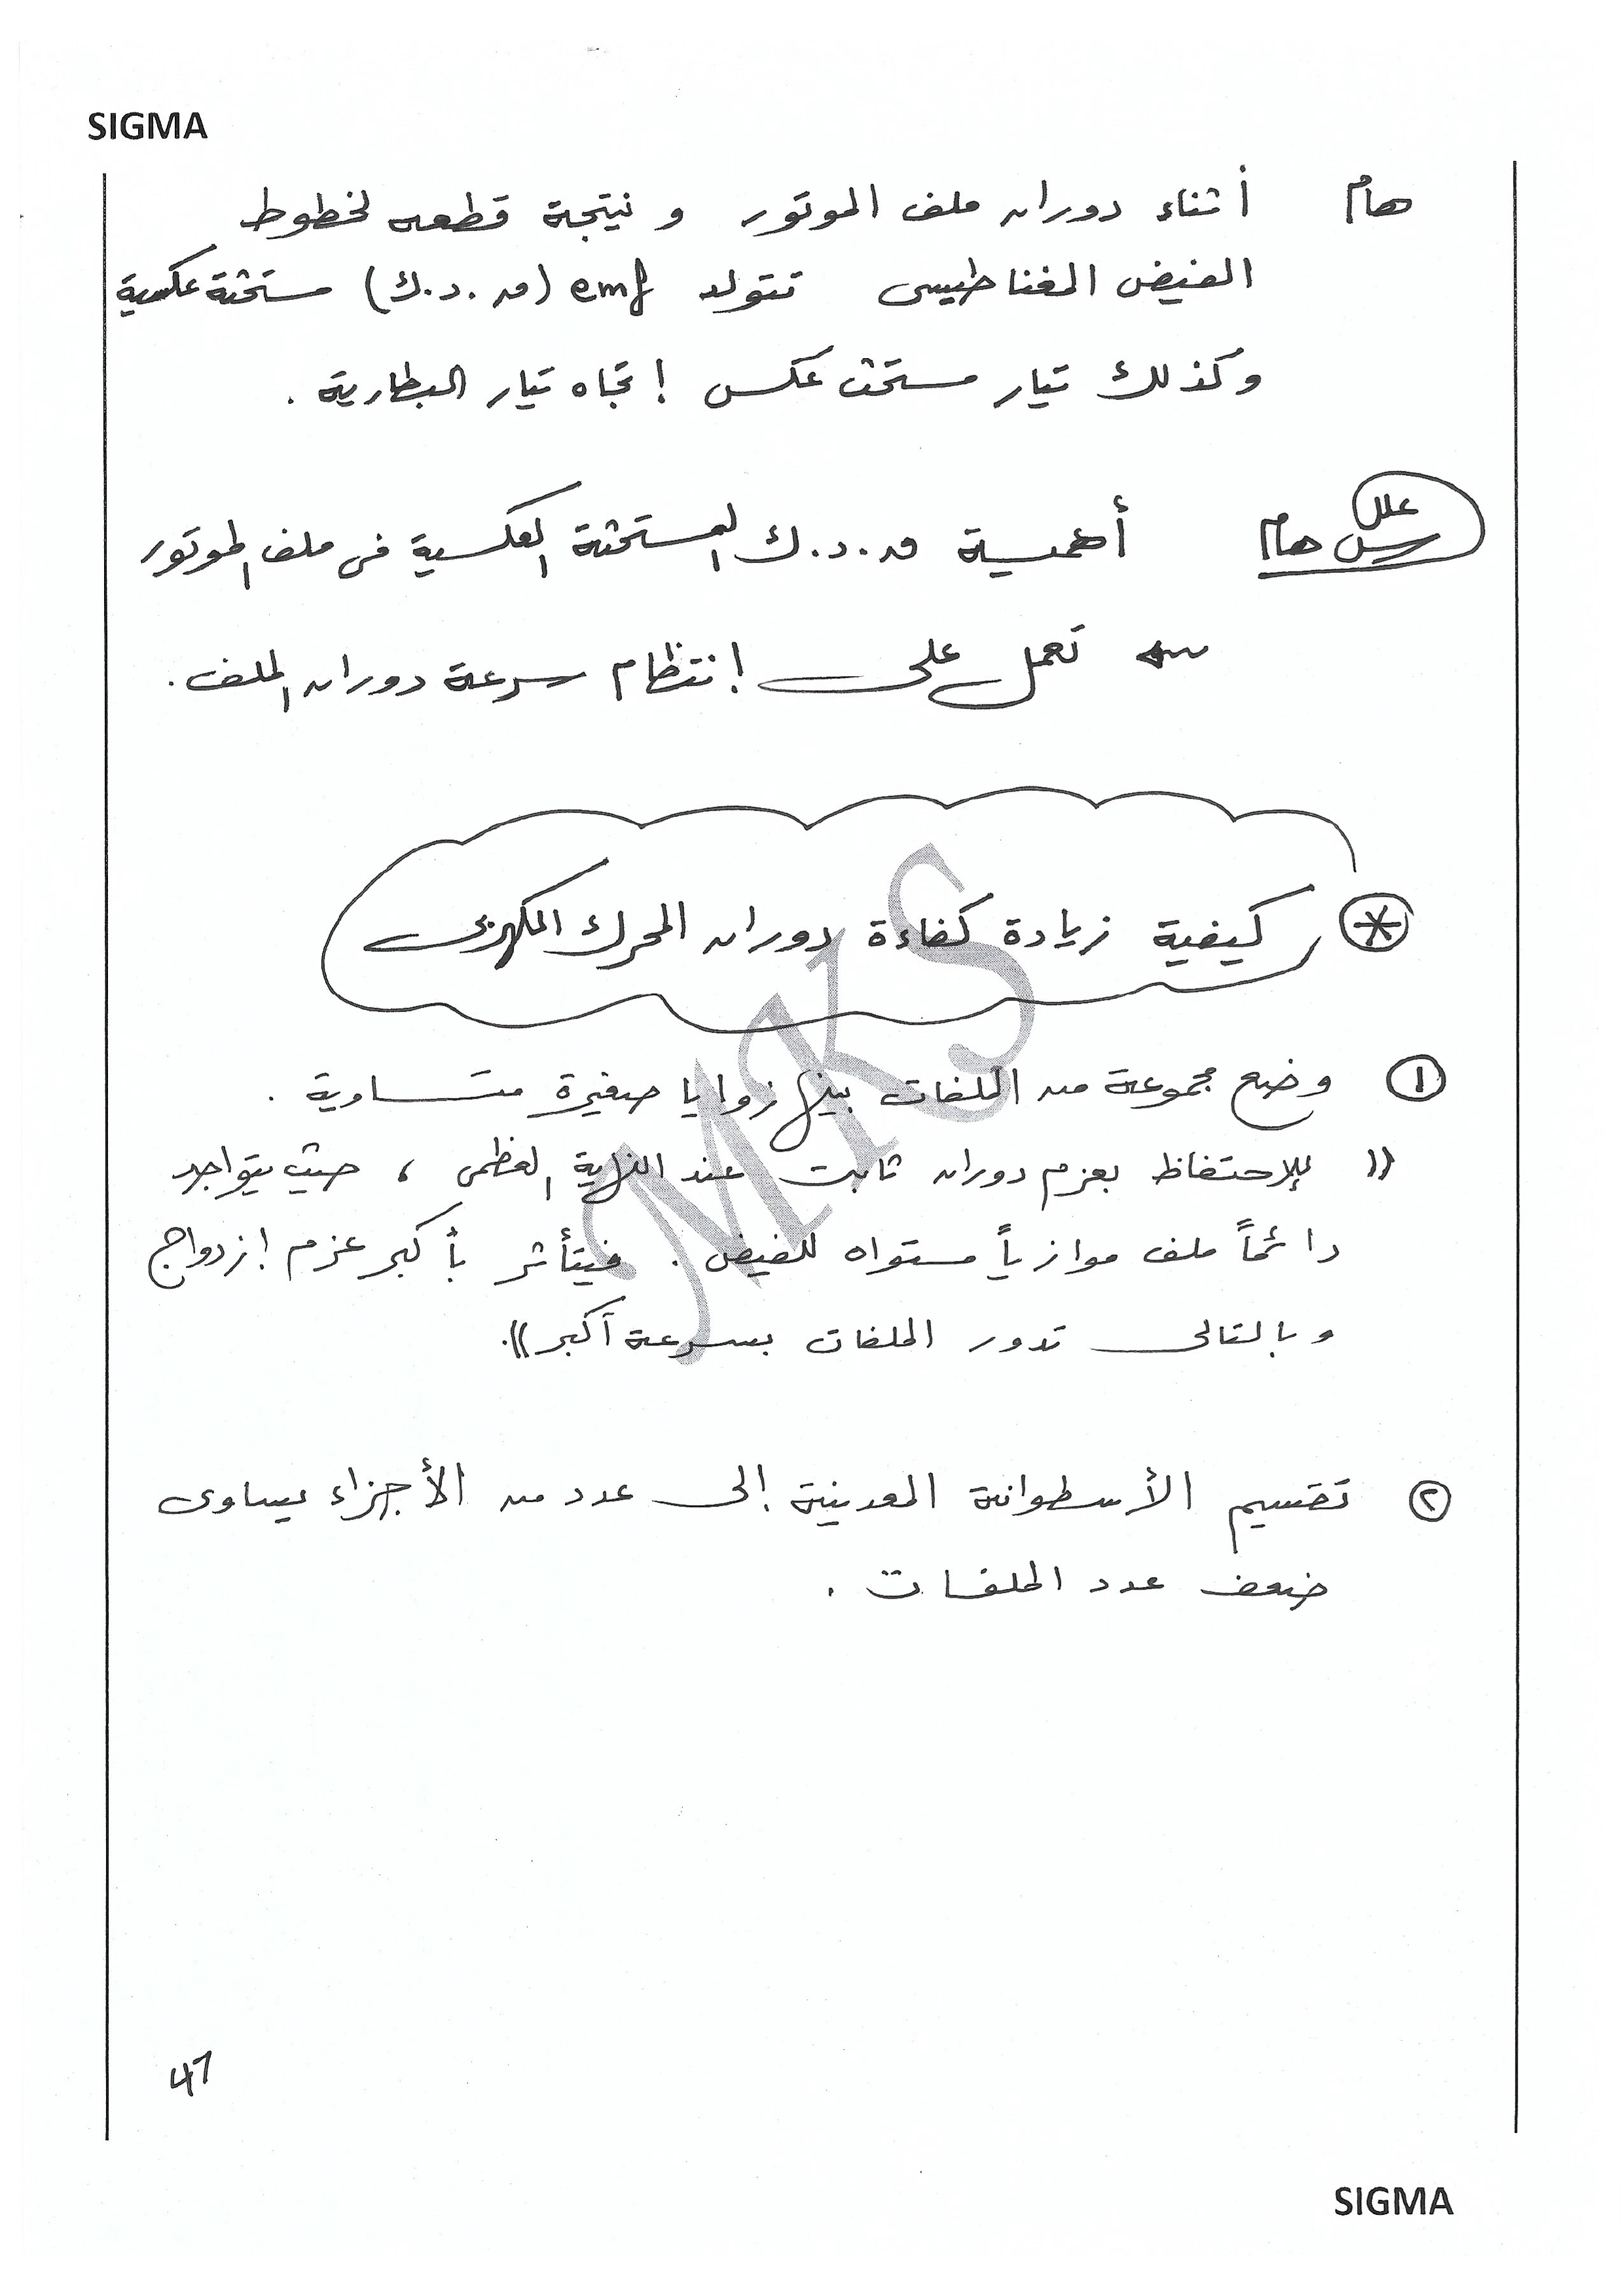 SIGMA
هام أثناء دوران ملف الموتور و نتيجة قطعه لخطوط
الفيض المغناطيسى تتولد emf (ق.د.ك) مستحثة عكسية
وكذلك تيار مستحث عكس إتجاه تيار البطارية .
علل
س هام أهمية ق.د.ك المستحثة العكسية فى ملف الموتور
تعمل على إنتظام سرعة دوران الملف .
* كيفية زيادة كفاءة دوران المحرك الكهربى
١ وضع مجموعة من الملفات بينها زوايا صغيرة متساوية .
(( للإحتفاظ بعزم دوران ثابت عند النهاية العظمى ، حيث يتواجد
دائماً ملف موازياً مستواه للفيض . فيتأثر بأكبر عزم إزدواج
وبالتالى تدور الملفات بسرعة أكبر )).
٢ تقسيم الأسطوانة المعدنية إلى عدد من الأجزاء يساوى
ضعف عدد الملفات .
47
SIGMA
MKS